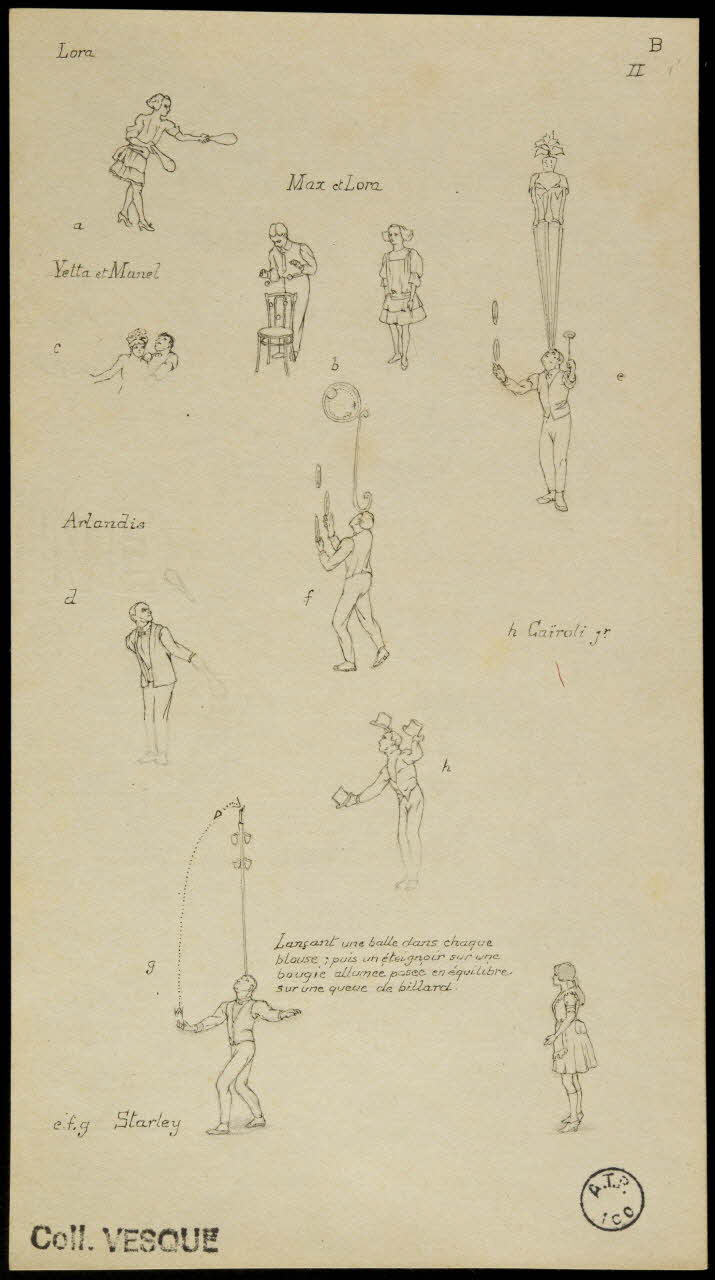 Lora
B
II
a
Max et Lora
Yetta et Manel
c
b
e
Arlandis
d
f
h Caïroli jr
h
g
Lançant une balle dans chaque
blouse ; puis un éteignoir sur une
bougie allumée posée en équilibre
sur une queue de billard.
e.f.g Starley
A.T.P.
ICO
Coll. VESQUE